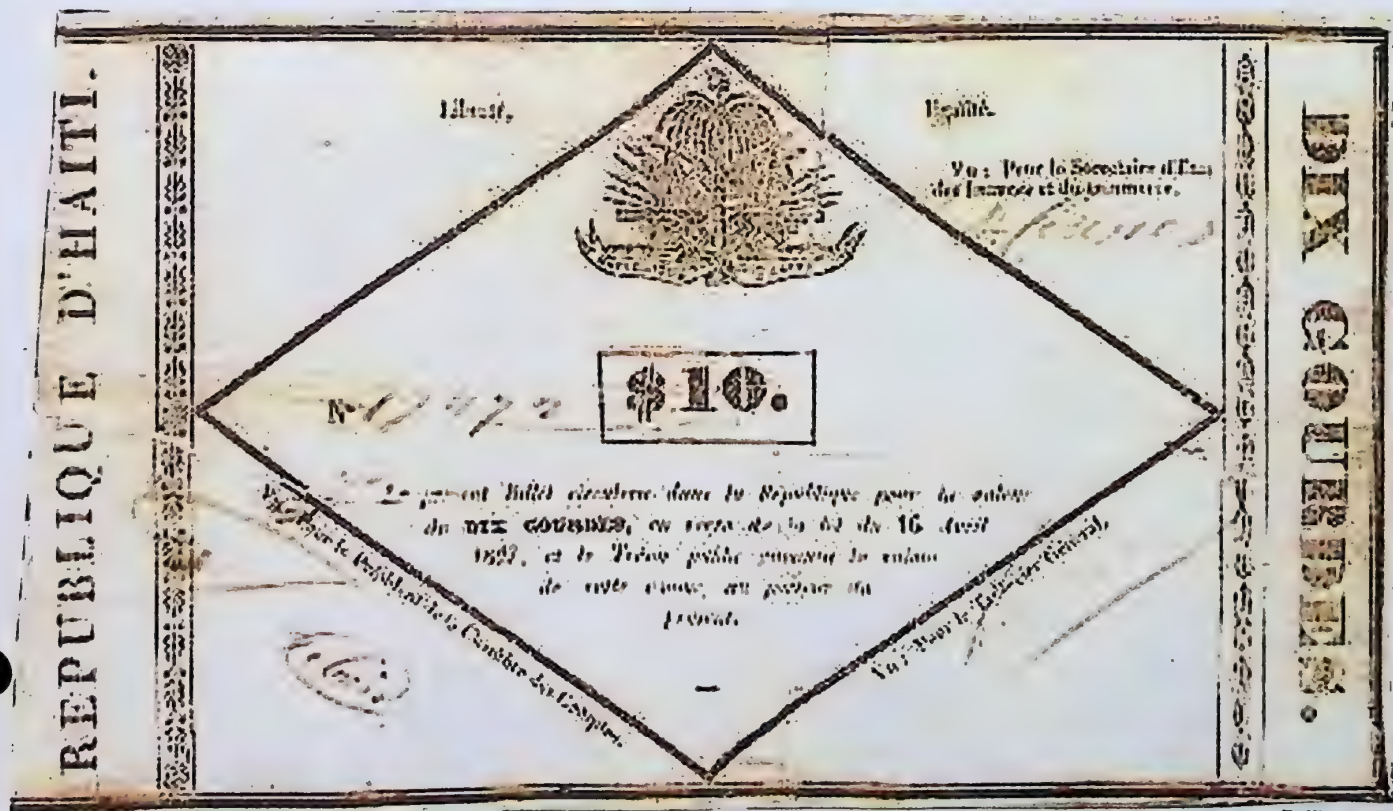 REPUBLIQUE D'HAITI.
Liberté,
Egalité.
Vu : Pour le Secrétaire d'Etat
des Finances et du Commerce,
No
$10.
Le présent Billet circulera dans la République pour la valeur
de DIX GOURDES, en vertu de la loi du 16 Avril
et le Trésor public payera la valeur
de cette somme, au porteur du
présent.
Vu : Pour le Président de la Chambre des Comptes,
Vu : Pour le Trésorier Général,
DIX GOURDES.